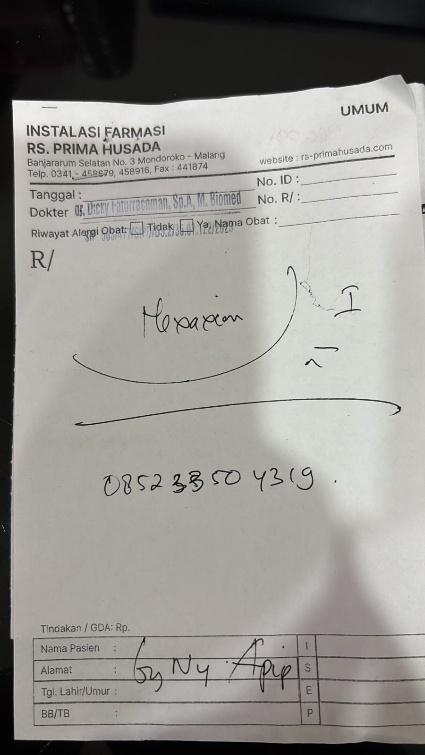 UMUM
INSTALASI FARMASI
RS. PRIMA HUSADA
Banjararum Selatan No. 3 Mondoroko - Malang
Telp. 0341 - 458679, 458916, Fax : 441874
website : rs-primahusada.com
Tanggal :
No. ID :
Dokter dr. Dicky Faturrachman, Sp.A, M. Biomed
No. R/ :
Riwayat Alergi Obat: Tidak Ya, Nama Obat :
R/
I
085233504319.
Tindakan / GDA: Rp.
Nama Pasien : I
By Ny Apip
Alamat : S
Tgl. Lahir/Umur : E
BB/TB : P